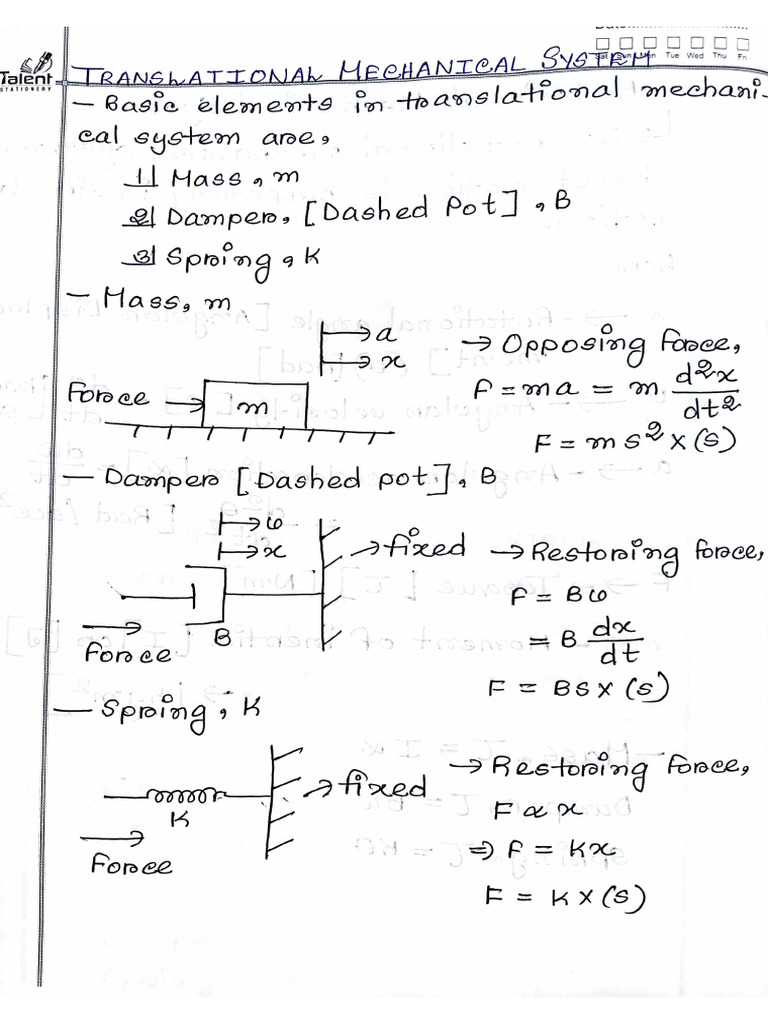 Talent
STATIONERY
Sat Sun Mon Tue Wed Thu Fri
TRANSLATIONAL MECHANICAL SYSTEM
- Basic elements in translational mechani-
cal system are,
1| Mass, m
2| Damper, [Dashed Pot], B
3| Spring, K
- Mass, m
a
x
→ Opposing force,
Force → m
F = ma = m d²x/dt²
F = m s² X(s)
- Damper [Dashed pot], B
v
x
→ fixed → Restoring force,
F = Bv
B
= B dx/dt
Force
F = BSX(s)
- Spring, K
→ fixed → Restoring force,
K
F ∝ x
Force
⇒ F = Kx
F = K X(s)